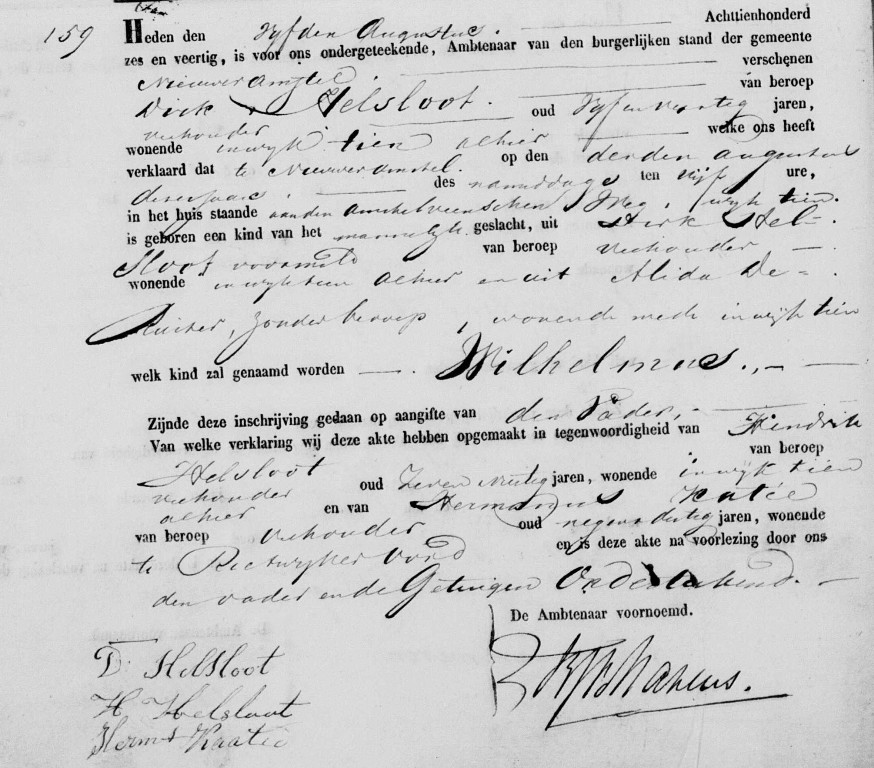 159
Heden den vyfden Augustus. Achttienhonderd
zes en veertig, is voor ons ondergeteekende, Ambtenaar van den burgerlijken stand der gemeente
Nieuwer Amstel verschenen
Dirk Helsloot. van beroep
veehouder oud vyf en veertig jaren,
wonende in wyk tien alhier welke ons heeft
verklaard dat te Nieuwer Amstel. op den derden augustus
deses jaars, des namiddags ten vijf ure,
in het huis staande aan den Amstelveenschen Weg, wyk tien.
is geboren een kind van het mannelyk geslacht, uit Dirk Hel-
sloot voormeld van beroep veehouder
wonende in wyk tien alhier en uit Alida De
Ruiter, zonder beroep, wonende mede in wyk tien
welk kind zal genaamd worden Wilhelmus.
Zijnde deze inschrijving gedaan op aangifte van den Vader,
Van welke verklaring wij deze akte hebben opgemaakt in tegenwoordigheid van Hendrik
Helsloot van beroep
veehouder oud jaren, wonende in wyk tien
alhier en van Hermanus Katée
van beroep veehouder oud negen dertig jaren, wonende
te Rietwyker oord en is deze akte na voorlezing door ons
den vader en de Getuigen Onderteekend.
De Ambtenaar voornoemd.
D. Helsloot
H Helsloot
Herms Kaatee